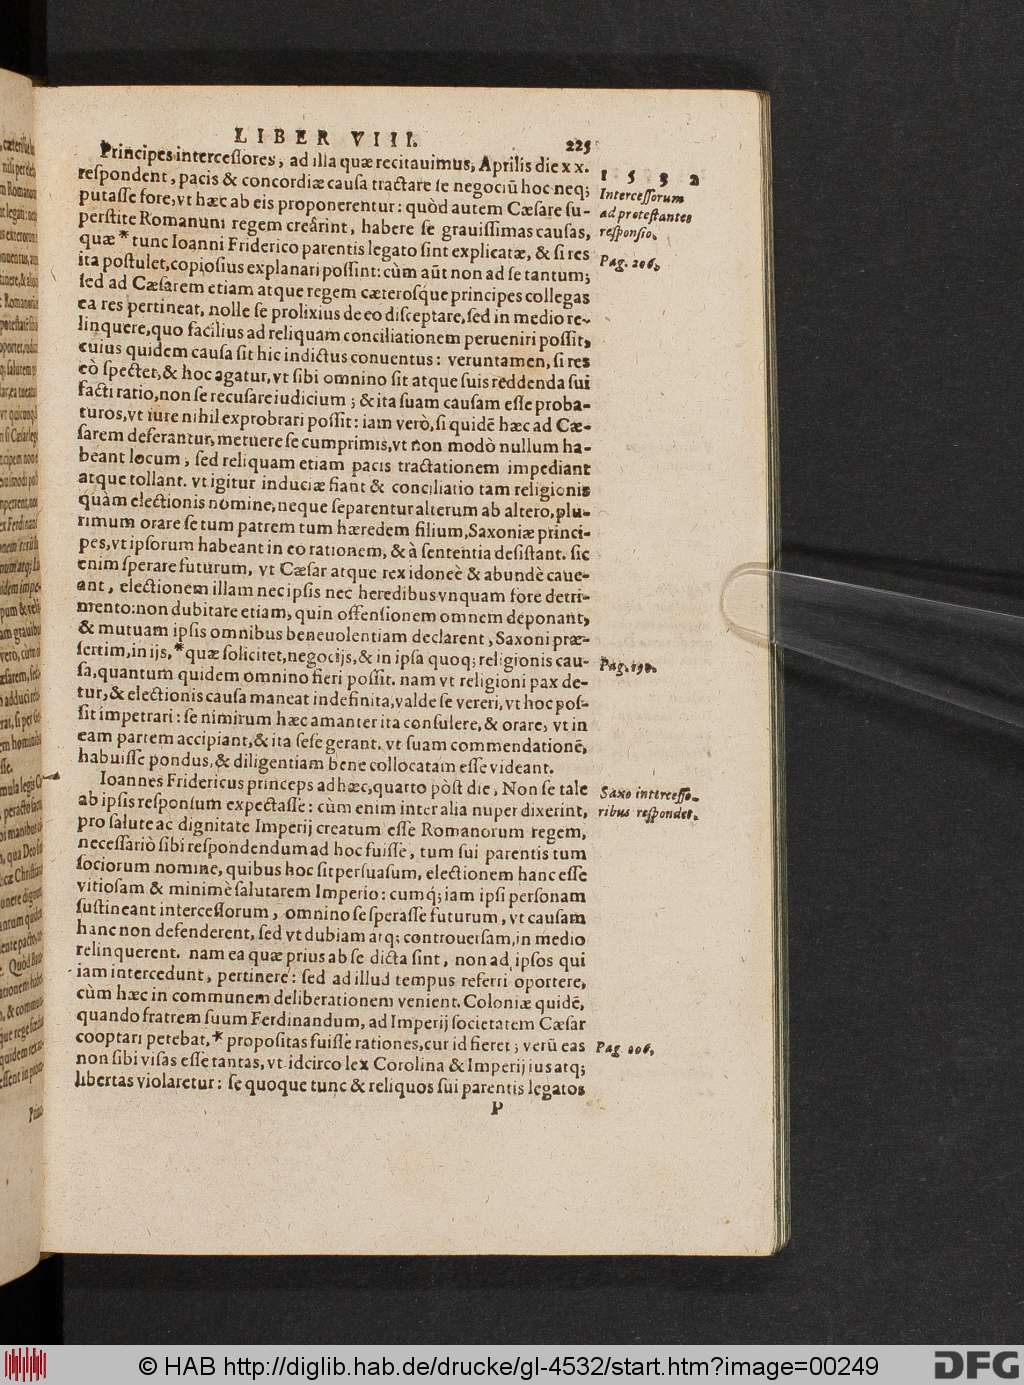 LIBER VIII. 225
Principes intercessores, ad illa quæ recitauimus, Aprilis die xx.
respondent, pacis & concordiæ causa tractare se negociū hoc neq;
putasse fore, vt hæc ab eis proponerentur: quòd autem Cæsare su-
perstite Romanum regem creârint, habere se grauissimas causas,
quæ * tunc Ioanni Friderico parentis legato sint explicatæ, & si res
ita postulet, copiosius explanari possint: cùm aūt non ad se tantum;
sed ad Cæsarem etiam atque regem cæterosq́ue principes collegas
ea res pertineat, nolle se prolixius de eo disceptare, sed in medio re-
linquere, quo facilius ad reliquam conciliationem perueniri possit,
cuius quidem causa sit hic indictus conuentus: veruntamen, si res
eò spectet, & hoc agatur, vt sibi omnino sit atque suis reddenda sui
facti ratio, non se recusare iudicium; & ita suam causam esse proba-
turos, vt iure nihil exprobrari possit: iam verò, si quidē hæc ad Cæ-
sarem deferantur, metuere se cumprimis, vt non modò nullum ha-
beant locum, sed reliquam etiam pacis tractationem impediant
atque tollant. vt igitur induciæ fiant & conciliatio tam religionis
quàm electionis nomine, neque separentur alterum ab altero, plu-
rimum orare se tum patrem tum hæredem filium, Saxoniæ princi-
pes, vt ipsorum habeant in eo rationem, & à sententia desistant. sic
enim sperare futurum, vt Cæsar atque rex idoneè & abundè caue-
ant, electionem illam nec ipsis nec heredibus vnquam fore detri-
mento: non dubitare etiam, quin offensionem omnem deponant,
& mutuam ipsis omnibus beneuolentiam declarent, Saxoni præ-
sertim, in ijs, * quæ solicitet, negocijs, & in ipsa quoq; religionis cau-
sa, quantum quidem omnino fieri possit. nam vt religioni pax de-
tur, & electionis causa maneat indefinita, valde se vereri, vt hoc pos-
sit impetrari: se nimirum hæc amanter ita consulere, & orare, vt in
eam partem accipiant, & ita sese gerant, vt suam commendationē,
habuisse pondus, & diligentiam bene collocatam esse videant.
Ioannes Fridericus princeps ad hæc, quarto pòst die, Non se tale
ab ipsis responsum expectasse: cùm enim inter alia nuper dixerint,
pro salute ac dignitate Imperij creatum esse Romanorum regem,
necessariò sibi respondendum ad hoc fuisse, tum sui parentis tum
sociorum nomine, quibus hoc sit persuasum, electionem hanc esse
vitiosam & minimè salutarem Imperio: cumq́; iam ipsi personam
sustineant intercessorum, omnino se sperasse futurum, vt causam
hanc non defenderent, sed vt dubiam atq; controuersam, in medio
relinquerent. nam ea quæ prius ab se dicta sint, non ad ipsos qui
iam intercedunt, pertinere: sed ad illud tempus referri oportere,
cùm hæc in communem deliberationem venient. Coloniæ quidē,
quando fratrem suum Ferdinandum, ad Imperij societatem Cæsar
cooptari petebat, * propositas fuisse rationes, cur id fieret; verū eas
non sibi visas esse tantas, vt idcirco lex Corolina & Imperij ius atq;
libertas violaretur: se quoque tunc & reliquos sui parentis legatos
P
1532
Intercessorum
ad protestantes
responsio.
Pag. 206.
Pag. 190.
Saxo intercesso-
ribus respondet.
Pag 006.
© HAB http://diglib.hab.de/drucke/gl-4532/start.htm?image=00249
DFG